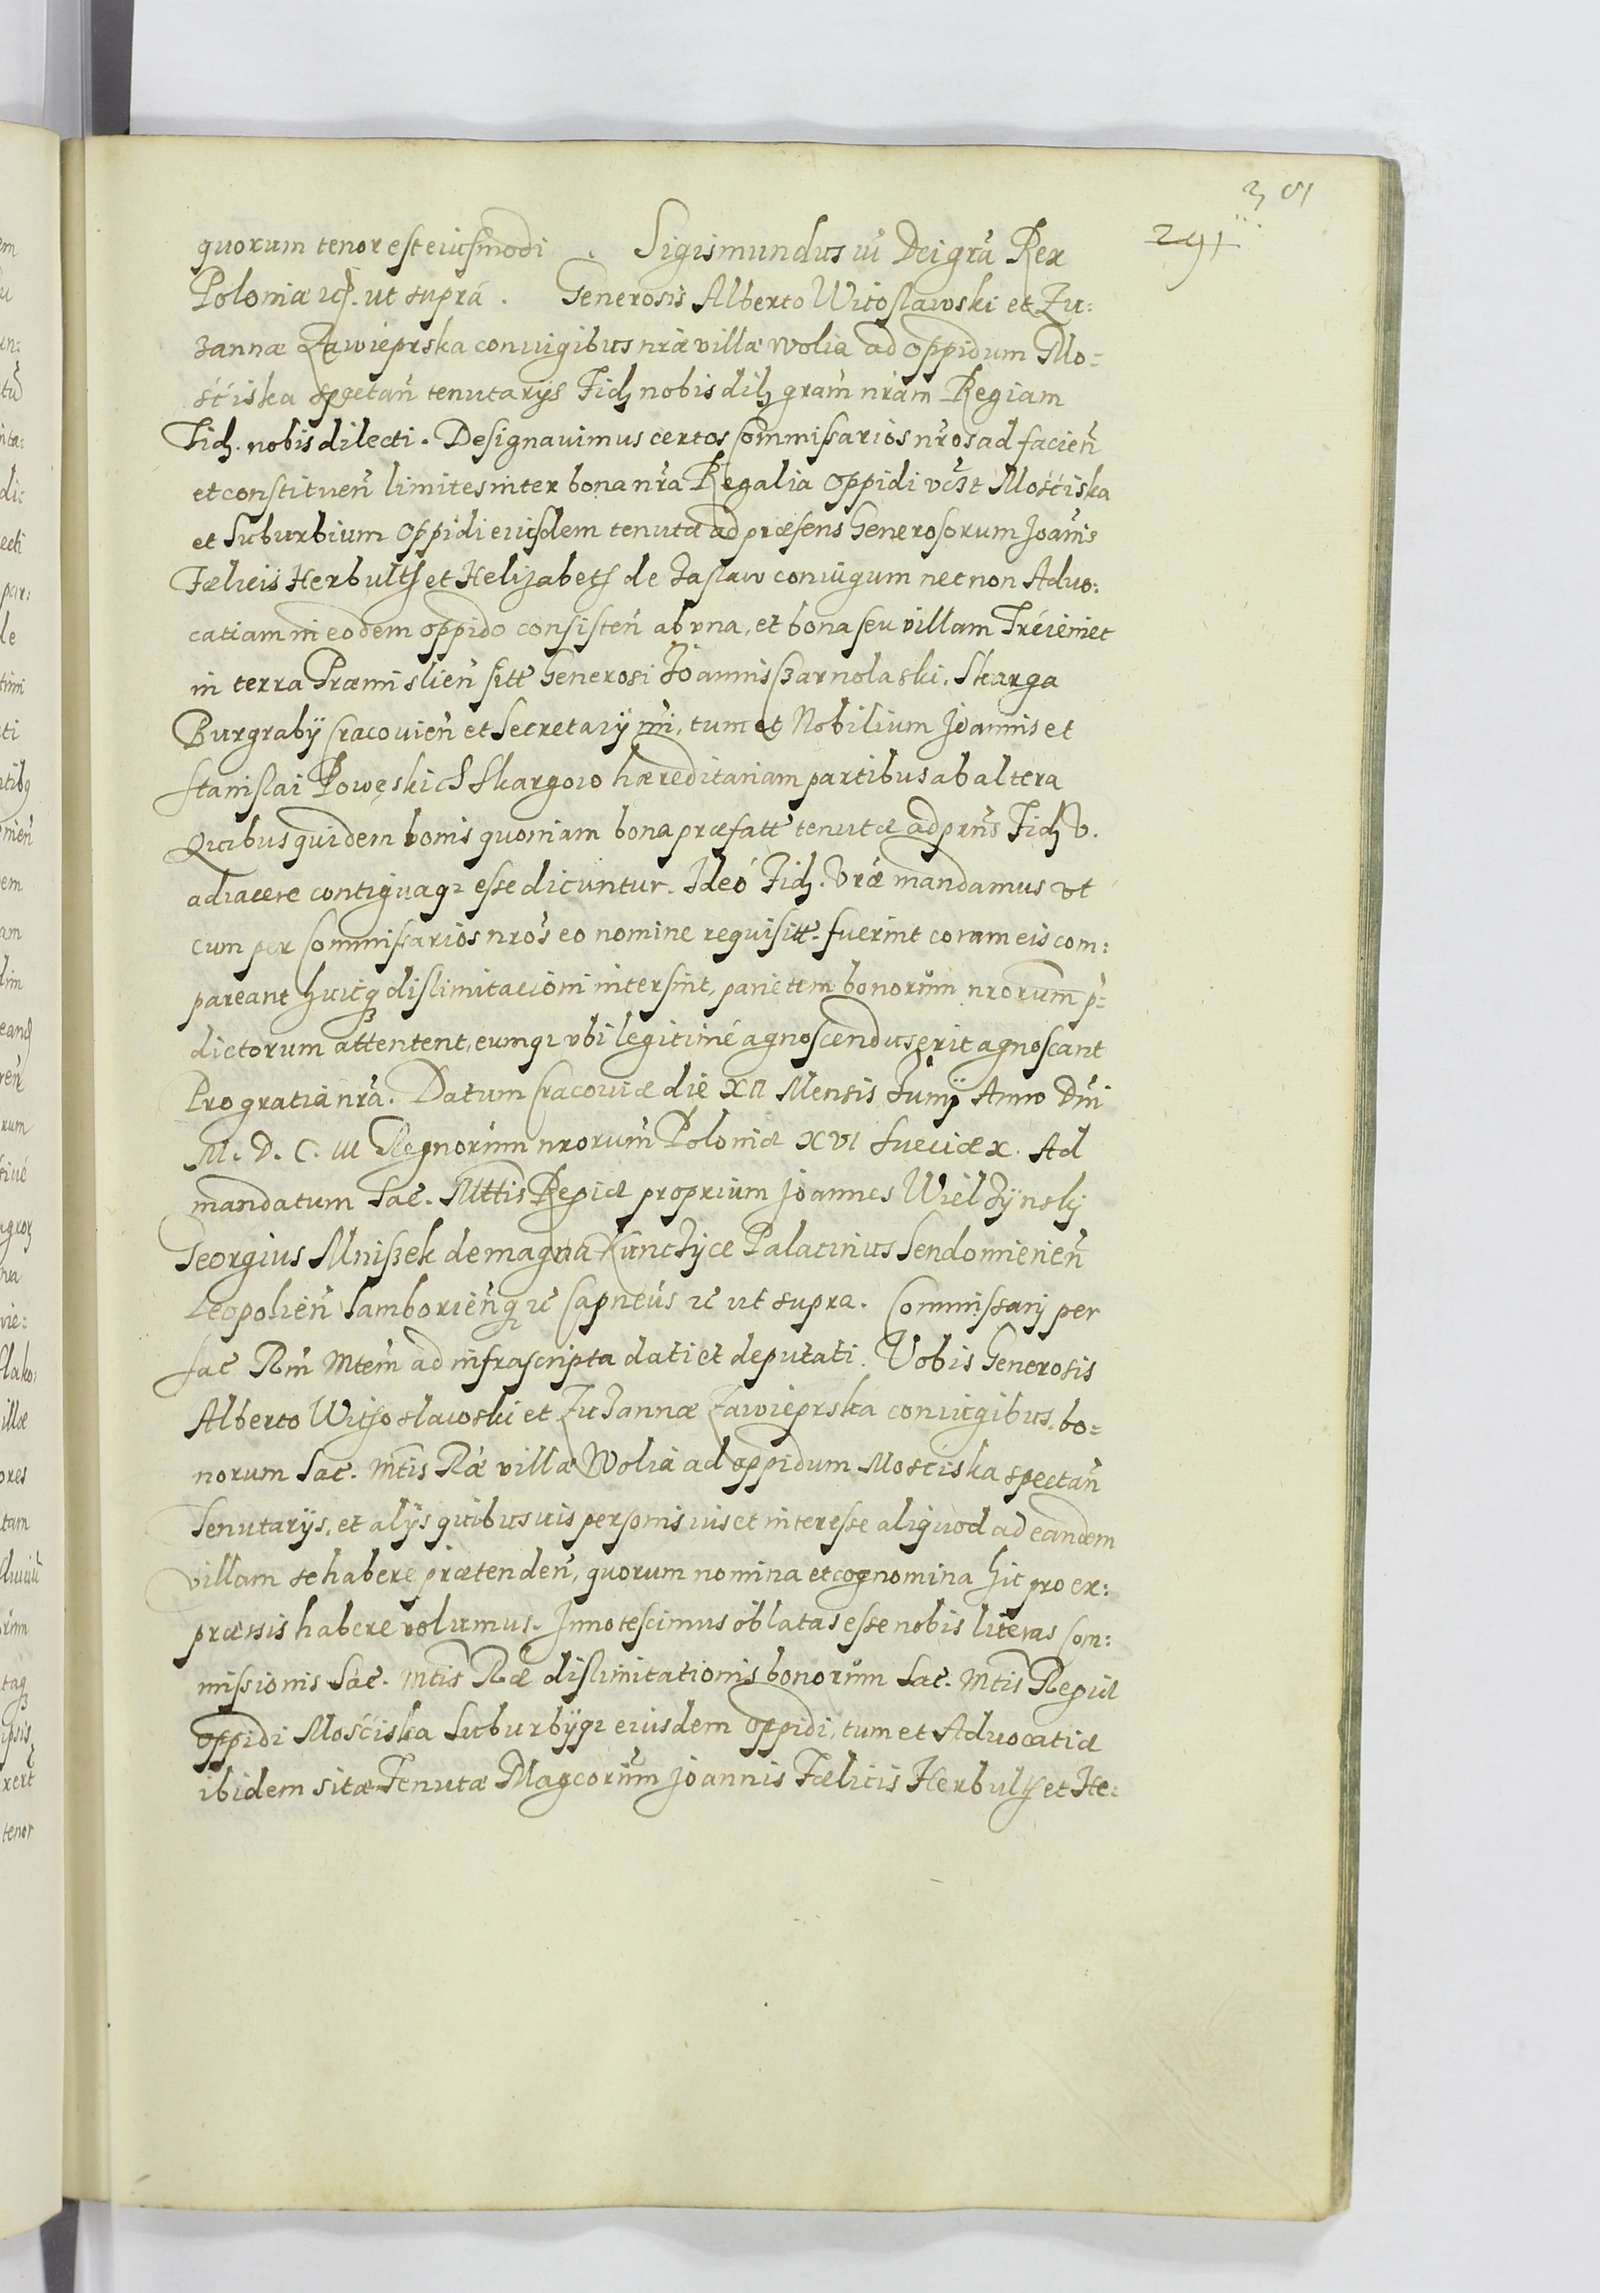 301
291
quorum tenor est eiusmodi. Sigismundus III Dei gra Rex
Poloniæ etc. ut supra. Generosis Alberto Witoslawski et Zu:
zannæ Zawieprska coniugibus nræ villæ Wolia ad oppidum Mo=
śćiska spectan tenutarÿs Fid nobis dil gram nram Regiam
Fid. nobis dilecti. Designavimus certos Commissarios nros ad facien
et constituen limites inter bona nra Regalia oppidi Mośćiska
et Suburbium oppidi eiusdem tenutæ ad præsens Generosorum Joanis
Fælicis Herbulth et Helizabeth de Zaslaw coniugum necnon Advo:
catiam in eodem oppido consisten ab vna, et bona seu villam
in terra Præmislien sitt Generosi Joannis Skarga
Burgrabÿ Cracovien et Secretarÿ nri, tum et Nobilium Joannis et
Stanislai Powęskich Skargow hæreditariam partibus ab altera
Quibus quidem bonis quoniam bona præfatt tenutæ ad prns Fid V.
adiacere contiguaq esse dicuntur. Ideó Fid. Vræ mandamus vt
cum per Commissarios nros eo nomine requisitt. fuerint coram eis com:
pareant huicq dislimitacioni intersint, parietem bonorum nrorum p:
dictorum attentent, eumq vbi legitimé agnoscendus erit agnoscant
Pro gratia nra. Datum Cracoviæ die XII Mensis Junÿ Anno Dni
M. D. C. III Regnorum nrorum Poloniæ XVI Sueciæ X. Ad
mandatum Sac. Mttis Regiæ proprium Joannes Wielzÿnskj
Georgius Mnissek de magna Kunczÿce Palatinus Sendomirien
Leopolien Samborienq etc Capneus etc ut supra. Commissarij per
Sac Rm Mtem ad infrascripta dati et deputati. Vobis Generosis
Alberto Withoslawski et Zuzannæ Zawieprska coniugibus, bo=
norum Sac. Mtis Ræ villæ Wolia ad oppidum Mosciska spectan
Tenutarÿs, et alÿs quibusuis personis ius et interesse aliquod ad eandem
villam se habere prætenden, quorum nomina et cognomina hic pro ex:
præssis habere volumus. Innotescimus oblatas esse nobis literas Com:
missionis Sac. Mtis Ræ dislimitationis bonorum Sac. Mtis Regiæ
oppidi Mośćiska Suburbÿq eiusdem oppidi, tum et Advocatiæ
ibidem sitæ Tenutæ Magcorum Joannis Fælicis Herbulth et He: